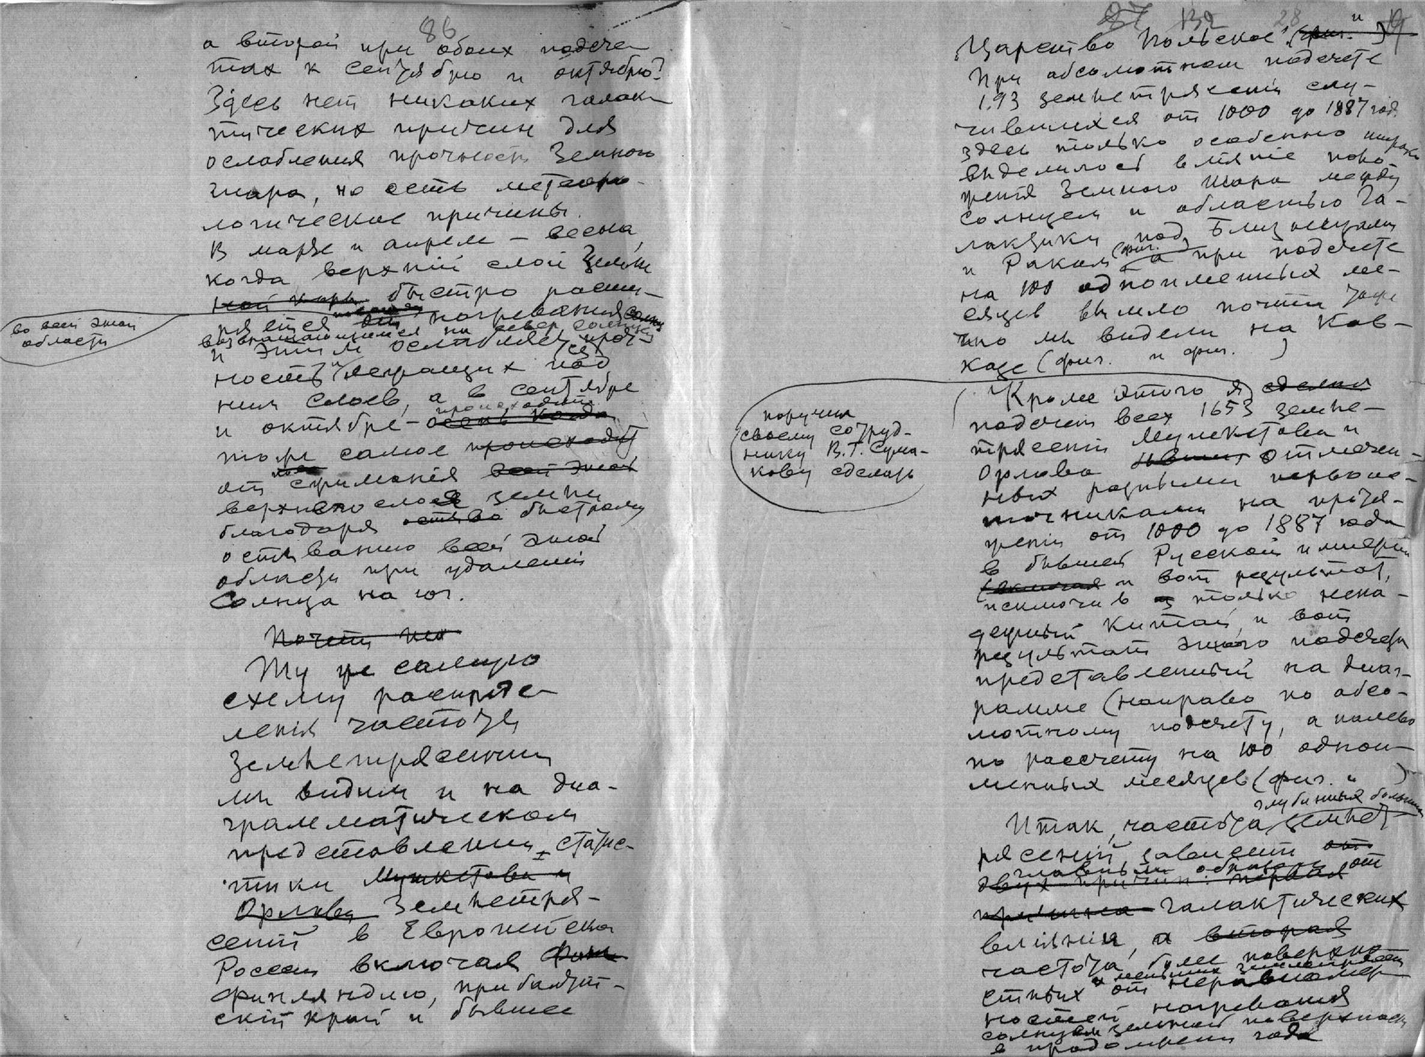 86
а второй при обоих подсче-
тах к сентябрю и октябрю?
Здесь нет никаких галак-
тических причин для
ослабления прочности Земного
шара, но есть метеоро-
логические причины.
В марте и апреле – весна,
когда верхний слой Земли
быстро расши-
ряется нагревания
во всей этой
области
возвращающимся на север солнцем
и этим ослабляет проч-
ность лежащих под
ним слоев, а в сентябре
и октябре – происходит
тоже самое
от сжимания
верхнего слоя земли
благодаря быстрому
остыванию всей этой
области при удалении
Солнца на юг.
Ту же самую
схему распреде-
ления частоты
Землетрясений
мы видим и на диа-
грамматическом
представлении статис-
тики Мушкетова и
Орлова Землетря-
сений в Европейской
России включая
Финляндию, прибалтий-
ский край и бывшее
87 132 28
Царство Польское (фиг. и )
При абсолютном подсчете
193 землетрясений слу-
чившихся от 1000 до 1887 года
здесь только особенно
выделилось влияние поло-
жения Земного шара между
солнцем и областью Га-
лактики под Близнецами
и Раком (фиг. ) а при подсчете
на 100 одноименных ме-
сяцев вышло почти тоже
что мы видели на Кав-
казе (фиг. и фиг. )
Кроме этого я сделал
поручил
своему сотруд-
нику В.Т. Сума-
кову сделать
подсчет всех 1653 земле-
трясений Мушкетова и
Орлова отмечен-
ных разными первоис-
точниками на протя-
жении от 1000 до 1887 года
в бывшей Русской империи
и вот результат,
исключив только нена-
дежный Китай, и вот
результат этого подсчета
представленный на диаг-
рамме (направо по абсо-
лютному подсчету, а налево
по рассчету на 100 однои-
менных месяцев (фиг. и )
глубинных больших
Итак, частота землет-
рясений зависит
главным образом от
двух причин: первая
причина галактических
влияний, а вторая
частота более поверхно-
стных и меньших землетрясений
от неравномер-
ностей нагревания
солнцем земной поверхности
в продолжении года